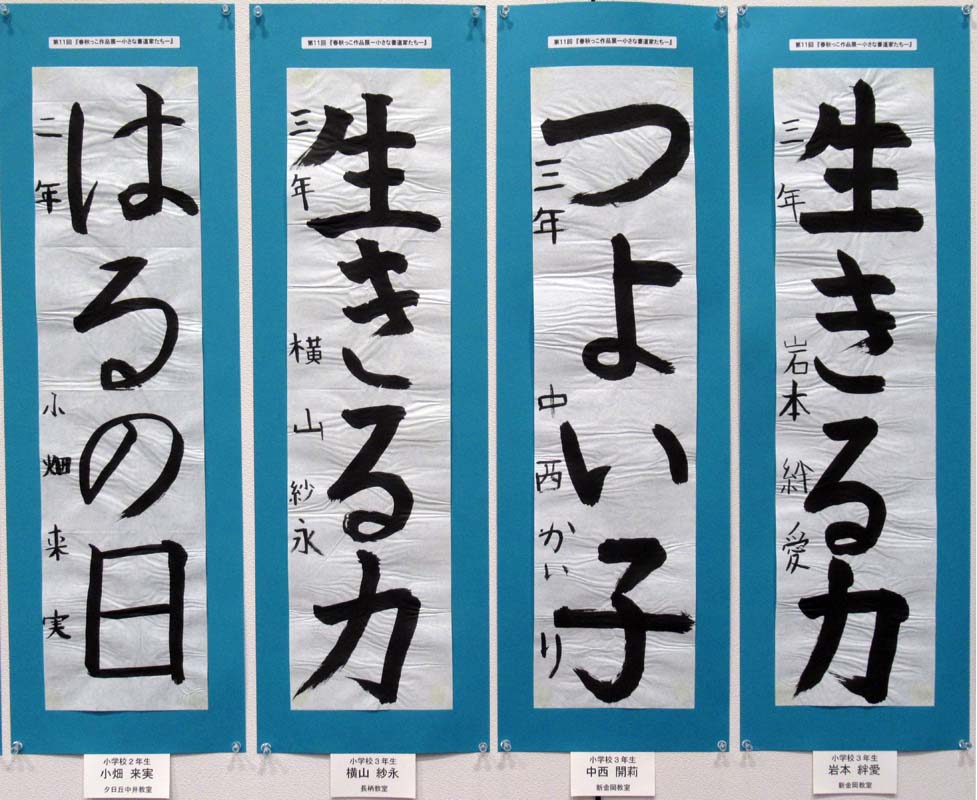 第11回 『春秋っこ作品展ー小さな書道家たちー』
生きる力
三年 岩本 絆愛
小学校３年生
岩本 絆愛
新金岡教室
第11回 『春秋っこ作品展ー小さな書道家たちー』
つよい子
三年 中西 かいり
小学校３年生
中西 開莉
新金岡教室
第11回 『春秋っこ作品展ー小さな書道家たちー』
生きる力
三年 横山 紗永
小学校３年生
横山 紗永
長柄教室
第11回 『春秋っこ作品展ー小さな書道家たちー』
はるの日
二年 小畑来実
小学校２年生
小畑 来実
夕日丘中井教室